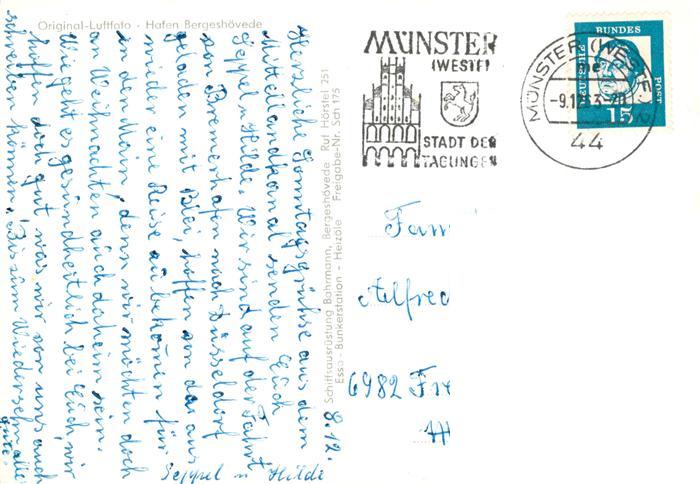 Original-Luftfoto · Hafen Bergeshövede
Herzliche Sonntagsgrüsse aus dem
Mittellandkanal senden Euch
Seppel u Hilde. Wir sind auf der Fahrt
von Bremerhafen nach Düsseldorf
geladen mit Blei, hoffen von da aus
wieder eine Reise zu bekommen für
in den Main, denn wir möchten doch
an Weihnachten auch daheim sein.
Wie geht es gesundheitlich bei Euch, wir
hoffen doch gut was wir von uns auch
schreiben können. Bis zum Wiedersehn alles
gute.
Seppel u Hilde
8.12.
Schiffsausrüstung Bahrmann, Bergeshövede Ruf Hörstel 251
Esso - Bunkerstation - Heizöle Freigabe-Nr. Sch 175
MÜNSTER
(WESTF)
STADT DER
TAGUNGEN
MÜNSTER (WESTF)
-9.12.63-20
44
DEUTSCHE BUNDES POST
15
Fam
Alfred
6982 Fre